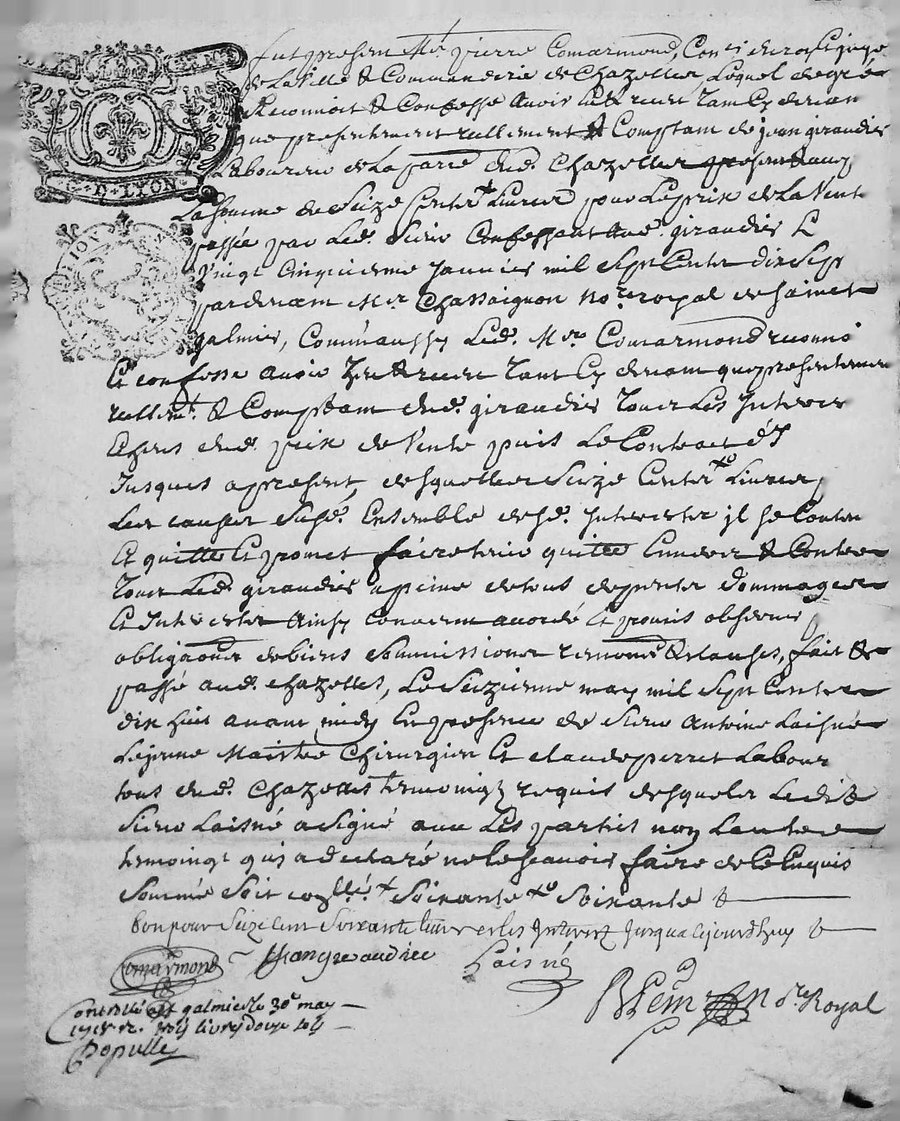 G. D. LYON
fut present Me. pierre Comarmond, Con.er du roy juge
de La Ville & Commanderie de Chazelles, Lequel de gré
Reconnoit & Confesse avoir heu & receu tant Cy devan
que presentement reellement & Comptam de jean giraudier
Laboureur de La parre dud. Chazelles present &
La somme de Seize Cents +te Livres pour Le prix de La Vent
passée par Led. Sieur Confessant aud. giraudier L
vingt Cinquieme Janvier mil Sept Cents dix Sept
pardevam Me Chassaignon no.re royal de Sainct
galmier, Comm'aussy Led. M.re Comarmond reconnoi
Et confesse avoir heu & receu tant Cy devam que presentemen
reellem.t & Comptam dud. giraudier tous Les Interes
Echeus dud. prix de Vente puis Le Contract d'I
Jusques a present, desquelles Seize Cents +te Livres,
Les causes Susd. Ensemble desd. Interests jl se Conten
Et quitte Et promet faire tenir quitte Envers & Contre
tous Led. giraudier a peine de tous depents dommages
Et Interests Ainsy convenu accordé Et promis observer,
obligaõns de biens Soumissions renonc.s & clauses, fait &
passé aud. Chazelles, Le Seizieme may mil Sept Cents
dix huit avant midy En presence de Sieur Antoine Laisné
Lejeune Maistre Chirurgien Et claude perret Labour
tous dud. Chazelles temoings requis desquels Ledit
Sieur Laisné a Signé avec Les parties non Lautre
temoingt qui a declaré ne le scavoir faire de Ce Enquis
Sommé Soit con.llé + Soixante +te Soixante &
bon pour Seize Cent Soixante livres et les Interetz jusqua ajourdhuy &
Comarmond Jean giraudier Laisné
no.re Royal
Controllé a St galmier le 30e may
1718 livres douze sols
Populle